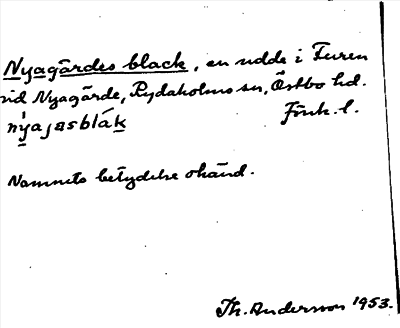 Nyagärdes black, en udde i Furen
vid Nyagärde, Rydaholms sn, Östbo hd.
nyajasblák Jönk. l.
Namnets betydelse okänd.
Th. Andersson 1953.